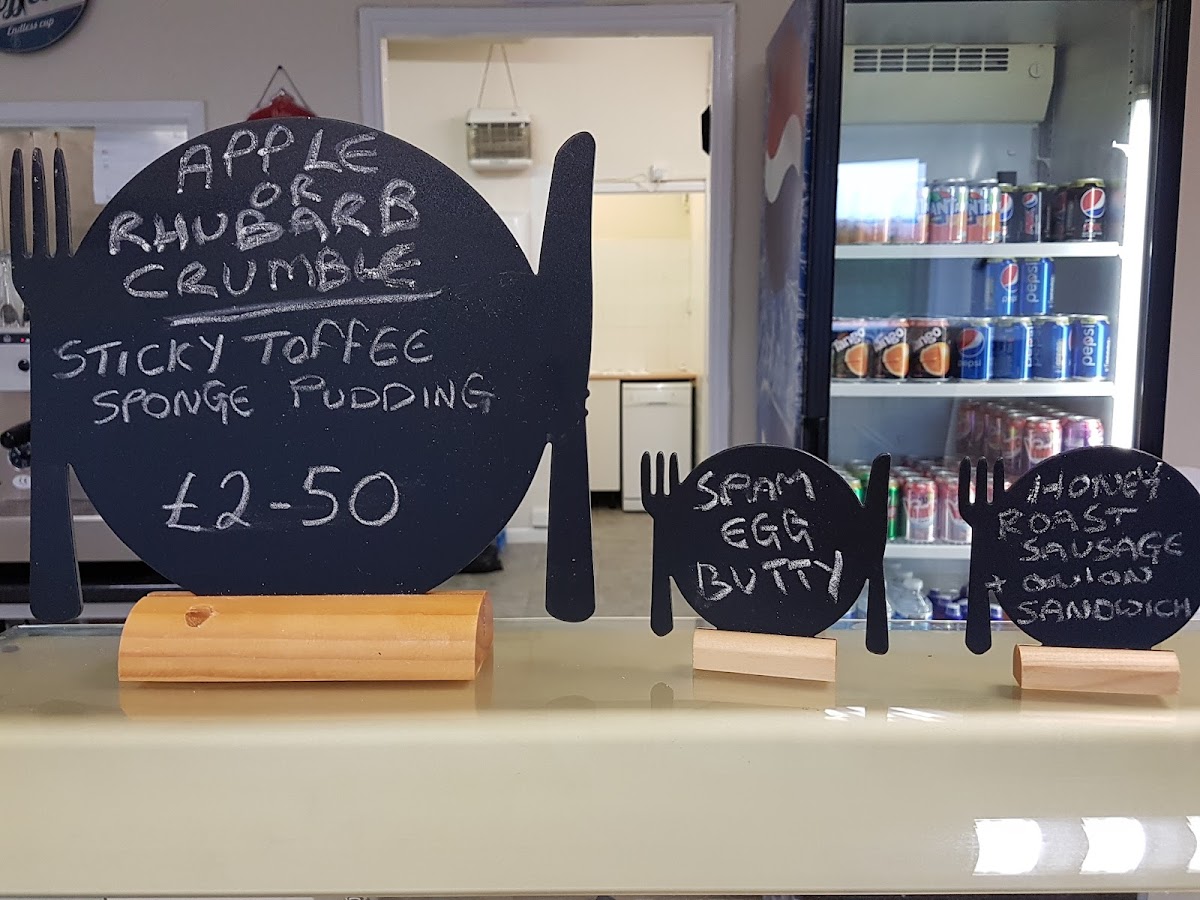 Endless cup
APPLE
OR
RHUBARB
CRUMBLE
STICKY TOFFEE
SPONGE PUDDING
£2-50
SPAM
EGG
BUTTY
HONEY
ROAST
SAUSAGE
+ ONION
SANDWICH
pepsi
Tango
pepsi
pepsi